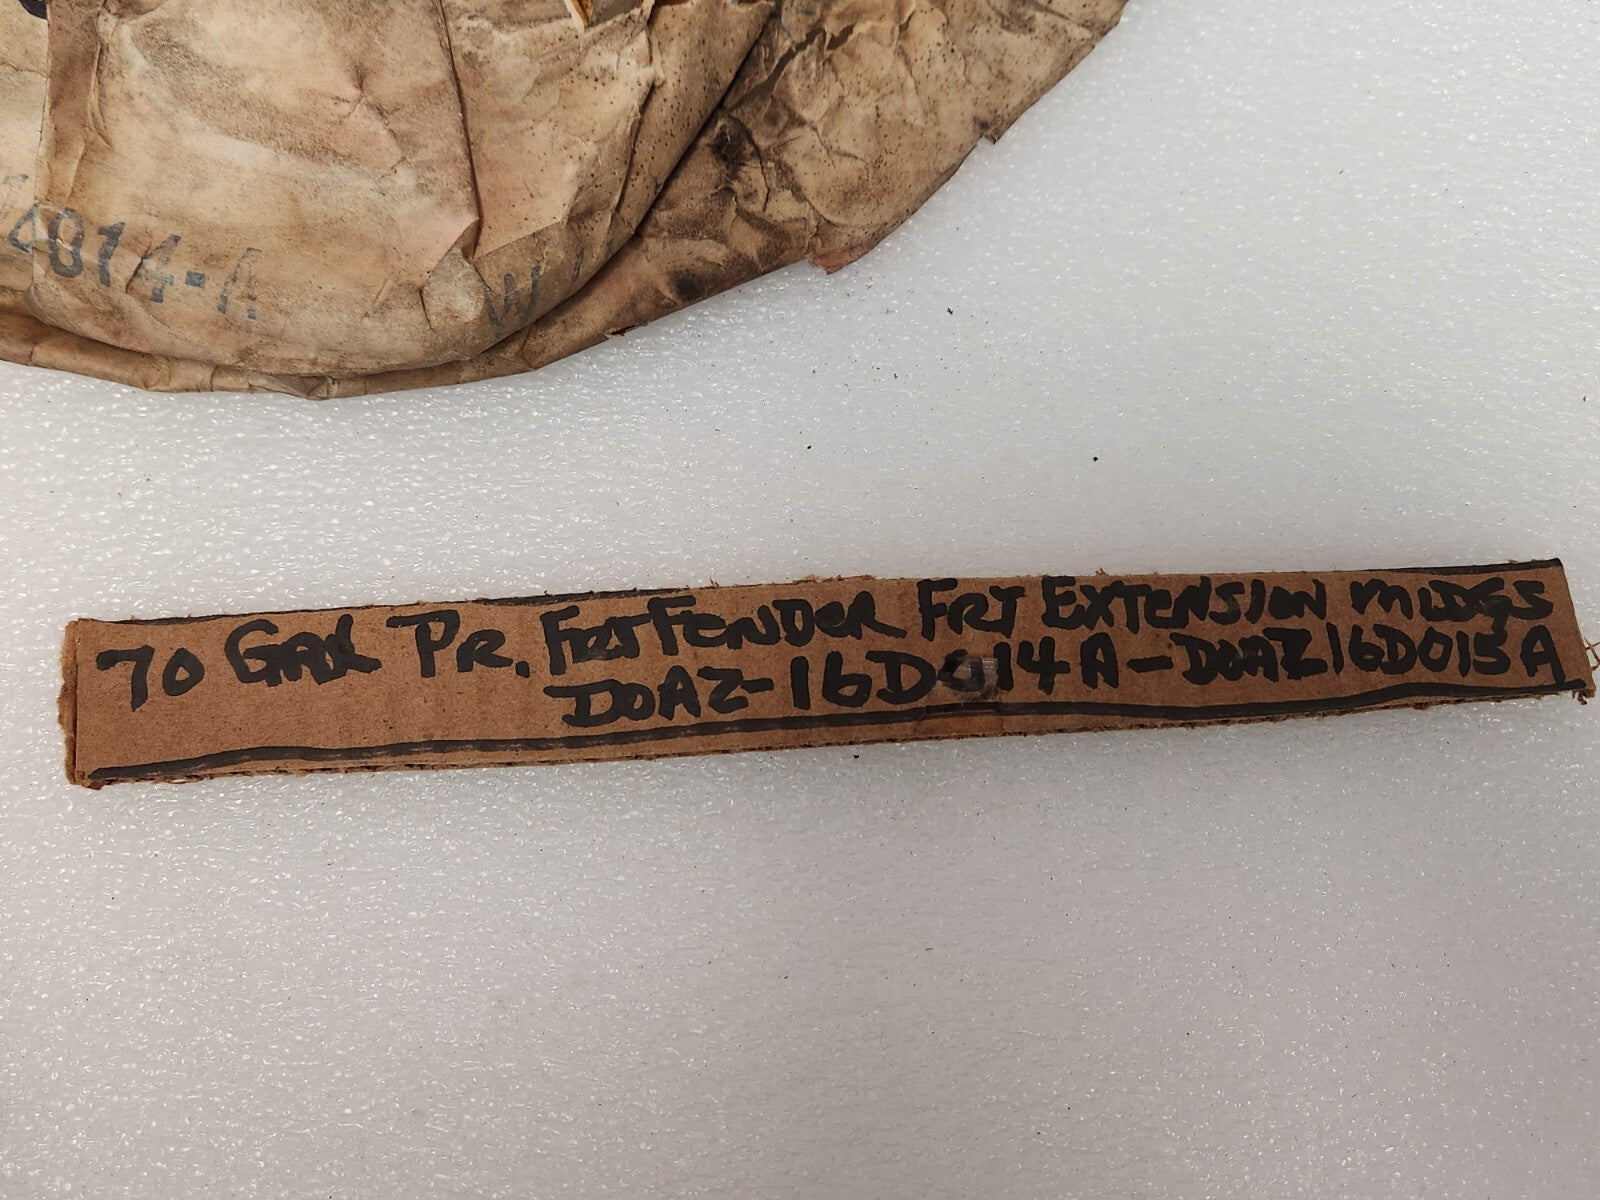 4014-A
70 GAL PR. FRT FENDER FRT EXTENSION MLDGS
DOAZ-16D014A-DOAZ16D015A